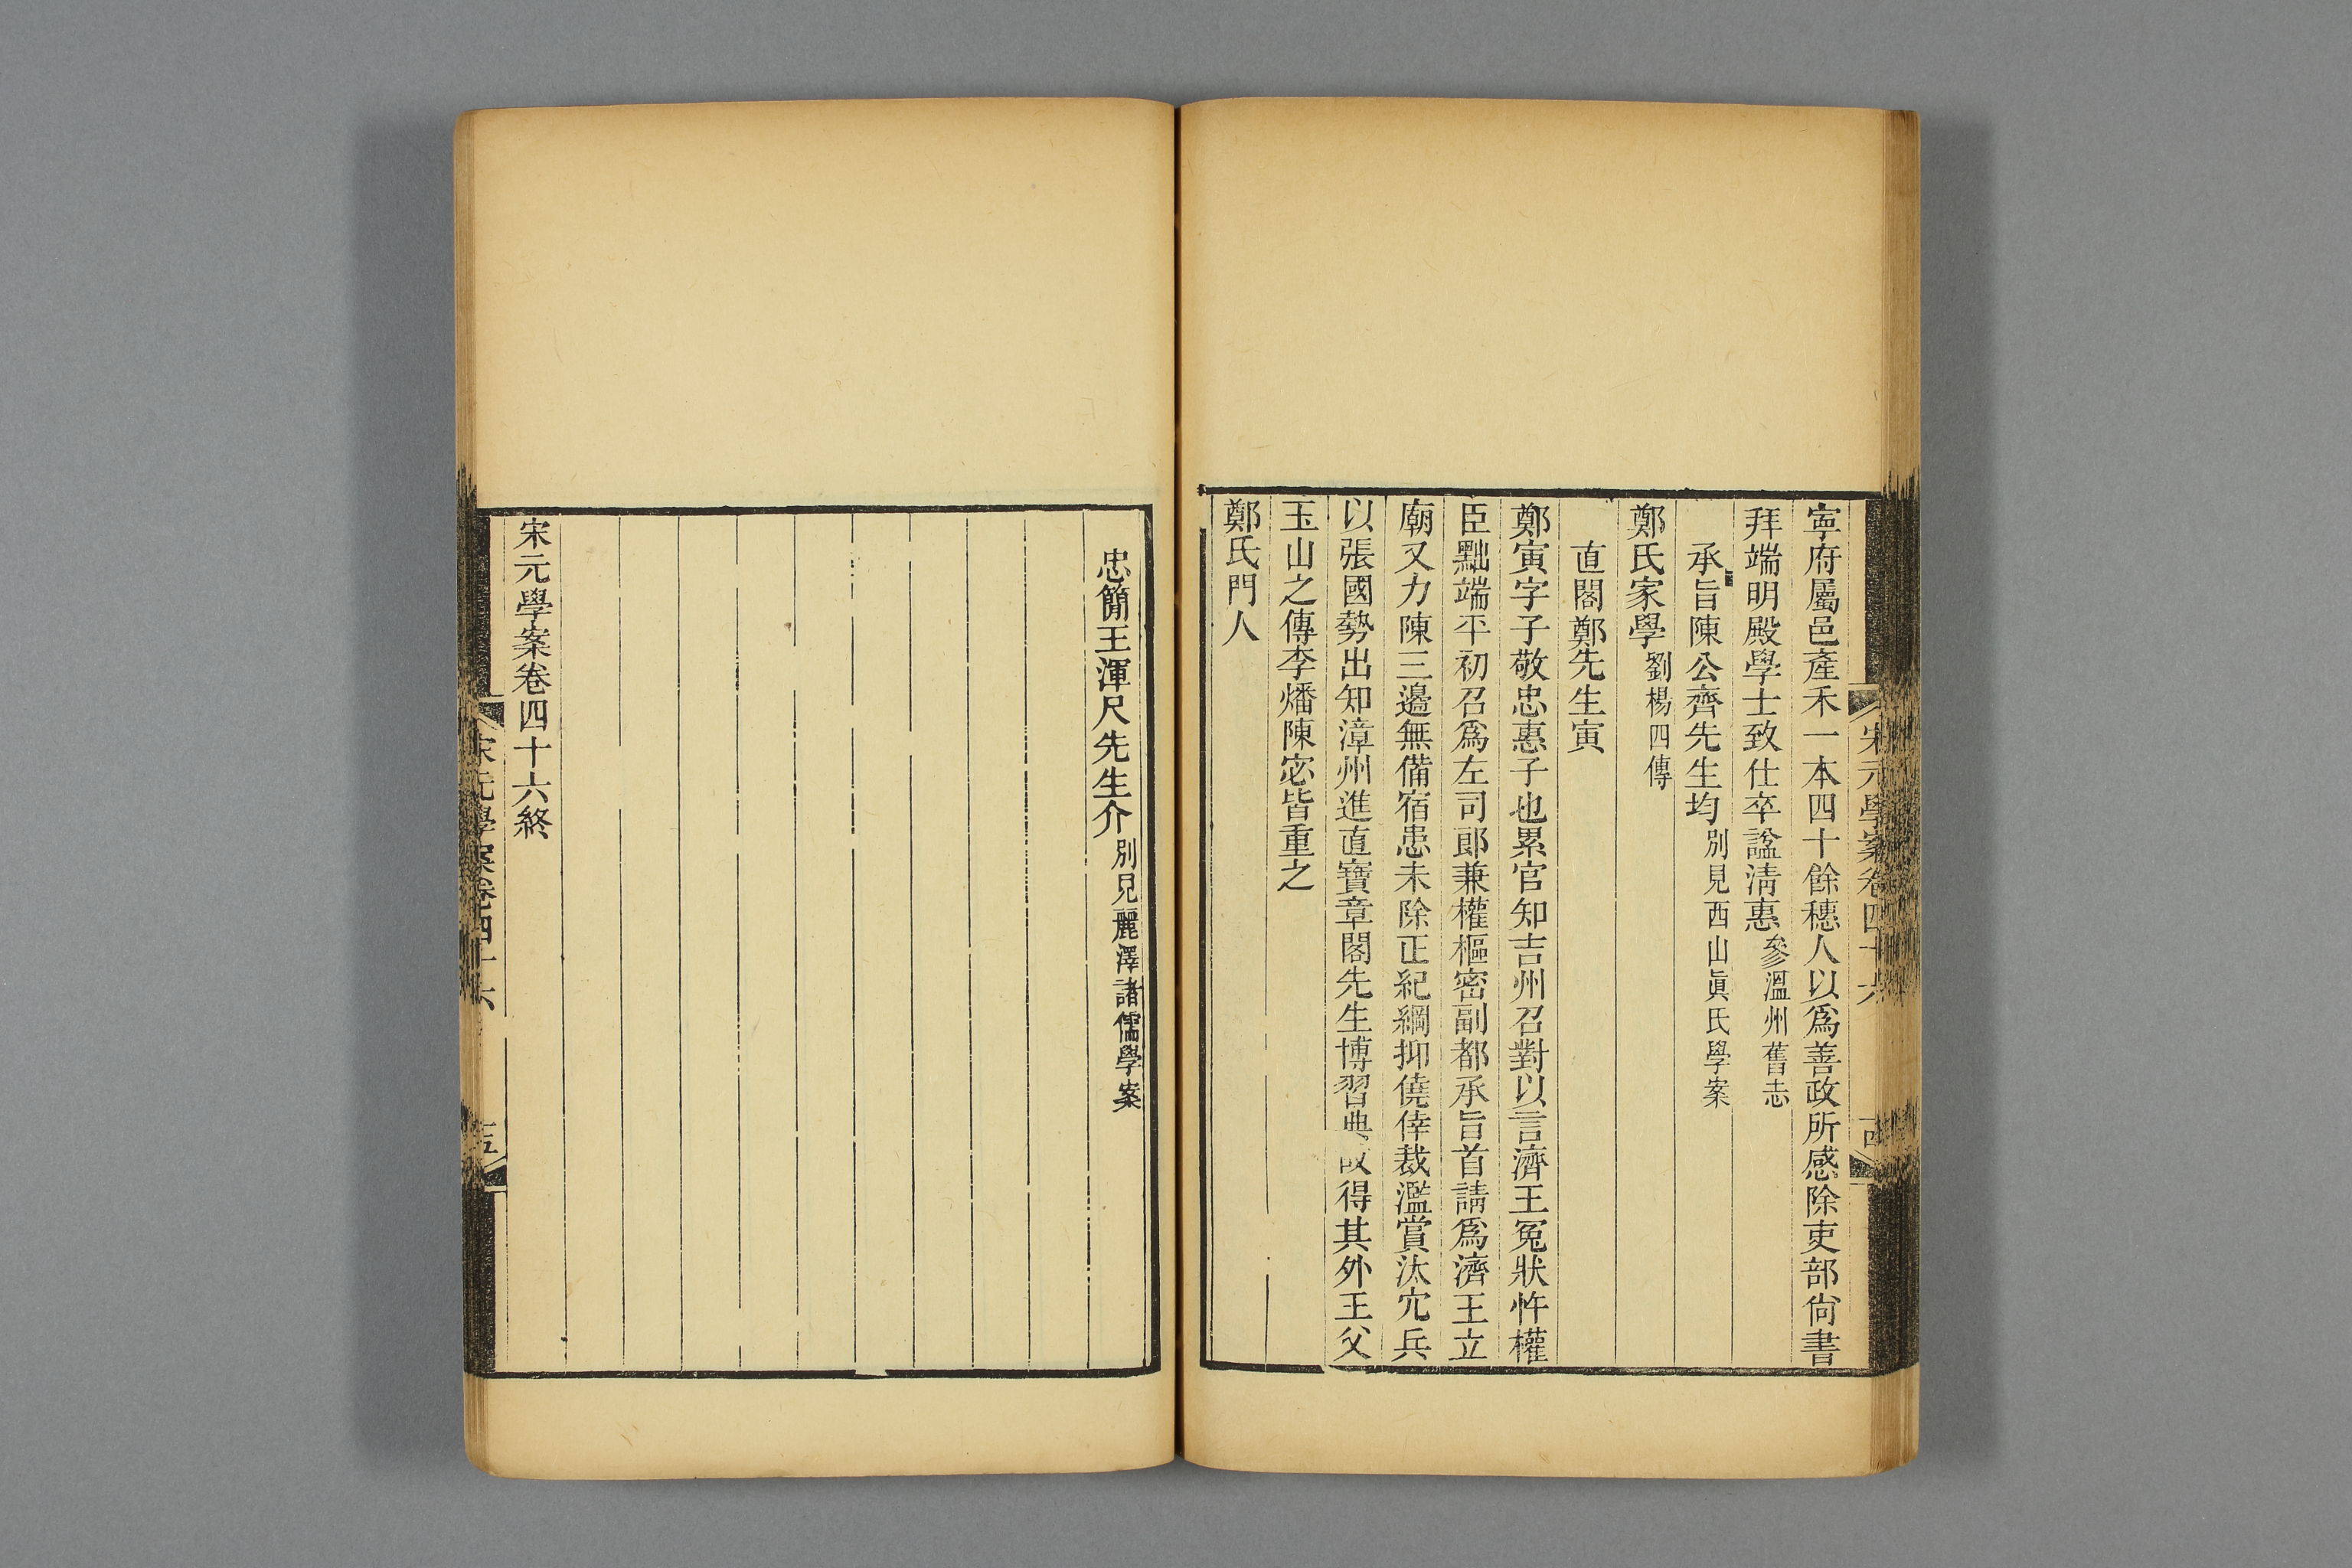 寍府屬邑產禾一本四十餘穗人以爲善政所感除吏部尙書
拜端明殿學士致仕卒諡淸惠參溫州舊志
承旨陳公齊先生均別見西山眞氏學案
鄭氏家學劉楊四傳
直閣鄭先生寅
鄭寅字子敬忠惠子也累官知吉州召對以言濟王冤狀忤權
臣黜端平初召爲左司郞兼權樞密副都承旨首請爲濟王立
廟又力陳三邊無備宿患未除正紀綱抑僥倖裁濫賞汰宂兵
以張國勢出知漳州進直寶章閣先生博習典故得其外王父
玉山之傳李燔陳宓皆重之
鄭氏門人
忠簡王渾尺先生介別見麗澤諸儒學案
宋元學案卷四十六終
宋元學案卷四十六
宋元學案卷四十六